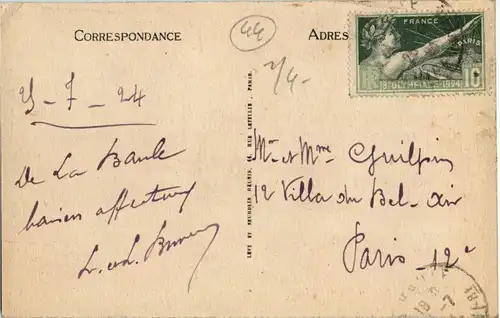 CORRESPONDANCE
ADRES
44
2/4-
FRANCE
PARIS
10c
8e OLYMPIADE 1924
5-7-24
De La Baule
baisers affectueux
L. et L.
LEVY ET NEURDEIN RÉUNIS, 44, RUE LETELLIER, PARIS.
Mr. et Mme Guilpin
12 Villa du Bel-Air
Paris-12e
18
18
7